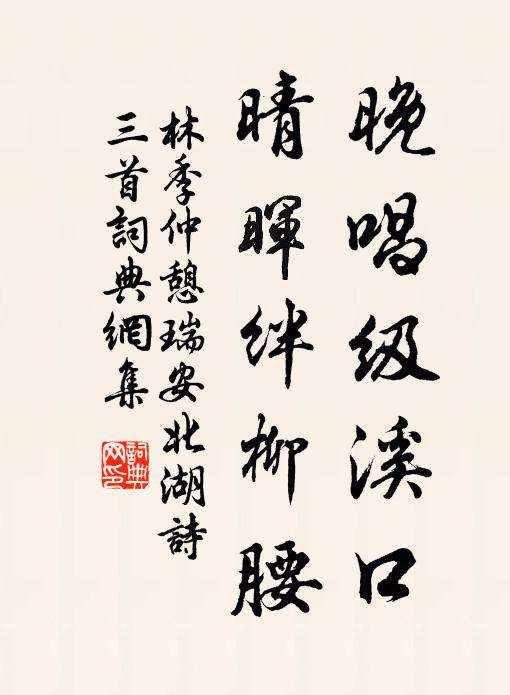 晚唱级溪口
晴暉绊柳腰
林季仲憩瑞安北湖詩
三首詞典網集
詞典
网印